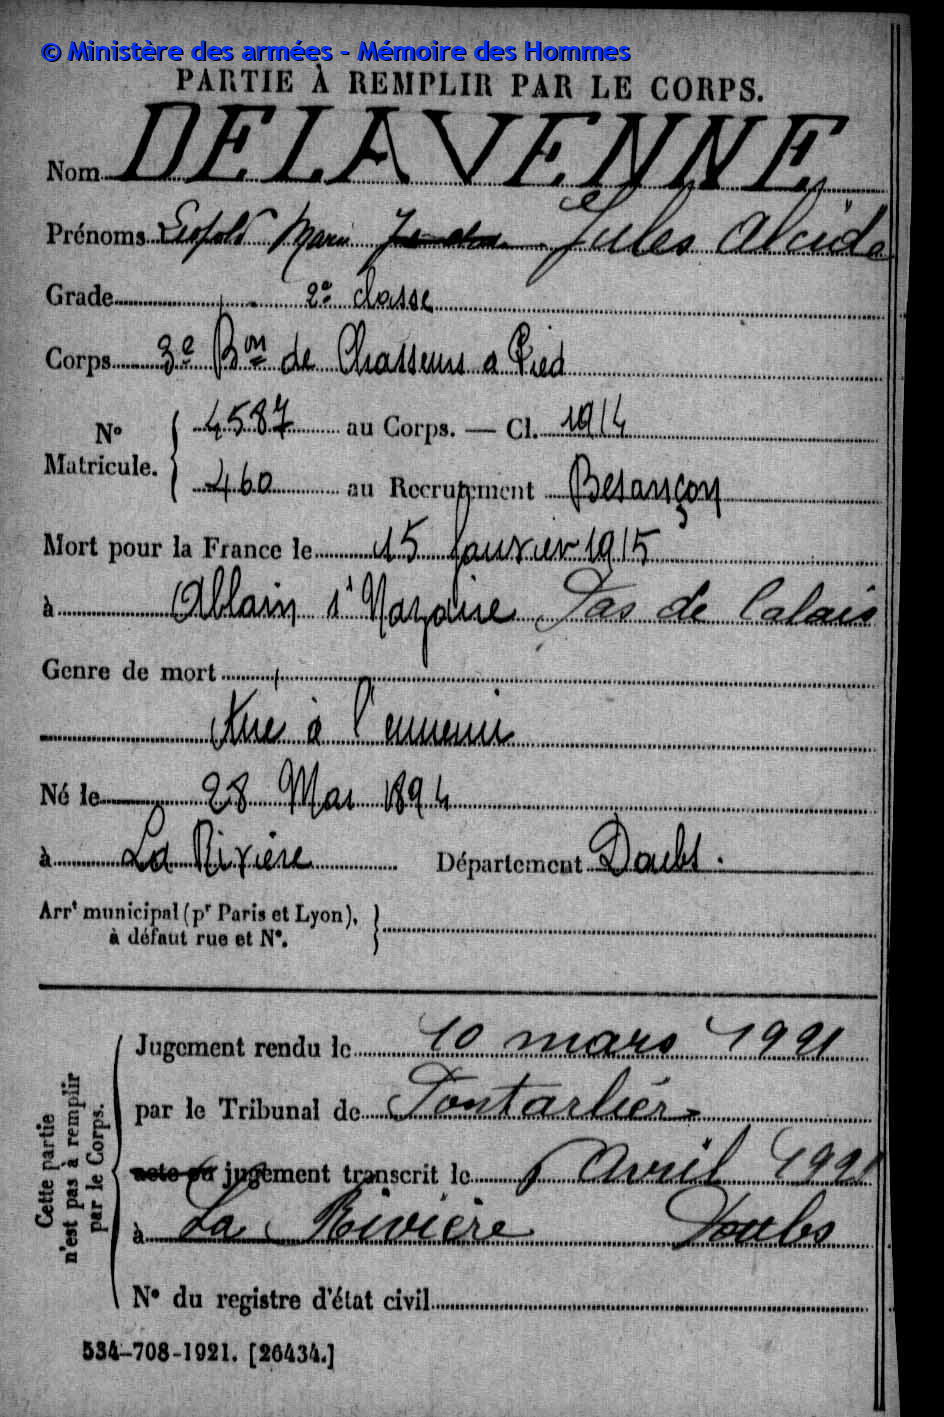 © Ministère des armées - Mémoire des Hommes
PARTIE À REMPLIR PAR LE CORPS.
Nom DELAVENNE
Prénoms Léopold Marie Jules Alcide
Grade 2e classe
Corps 3e Bon de Chasseurs a Pied
No Matricule. { 4587 au Corps. — Cl. 1914
460 au Recrutement Besançon
Mort pour la France le 15 Janvier 1915
à Ablain St Nazaire Pas de Calais
Genre de mort
Tué à l'ennemi
Né le 28 Mai 1894
à La Rivière Département Doubs.
Arrt municipal (pr Paris et Lyon),
à défaut rue et No. }
Cette partie n'est pas à remplir par le Corps.
Jugement rendu le 10 mars 1921
par le Tribunal de Pontarlier
acte ou jugement transcrit le Avril 1921
à La Rivière Doubs
No du registre d'état civil
534-708-1921. [26434.]